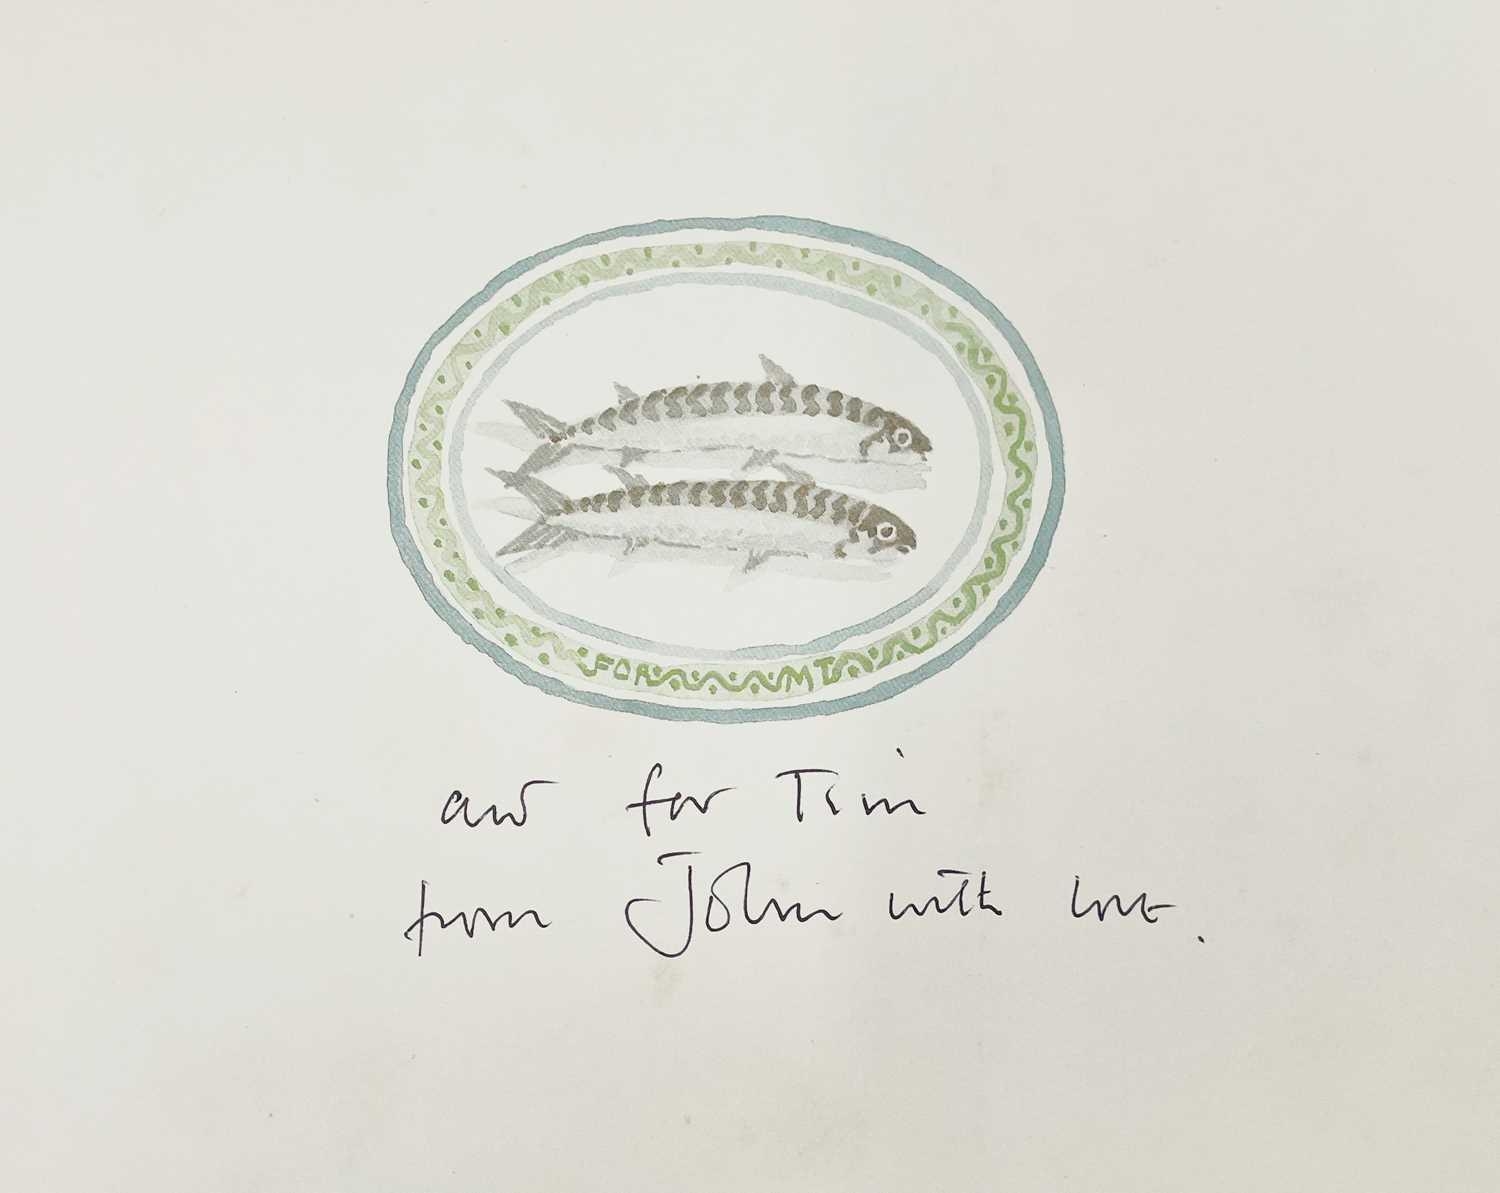 FOR MT
and for Tim
from John with love.